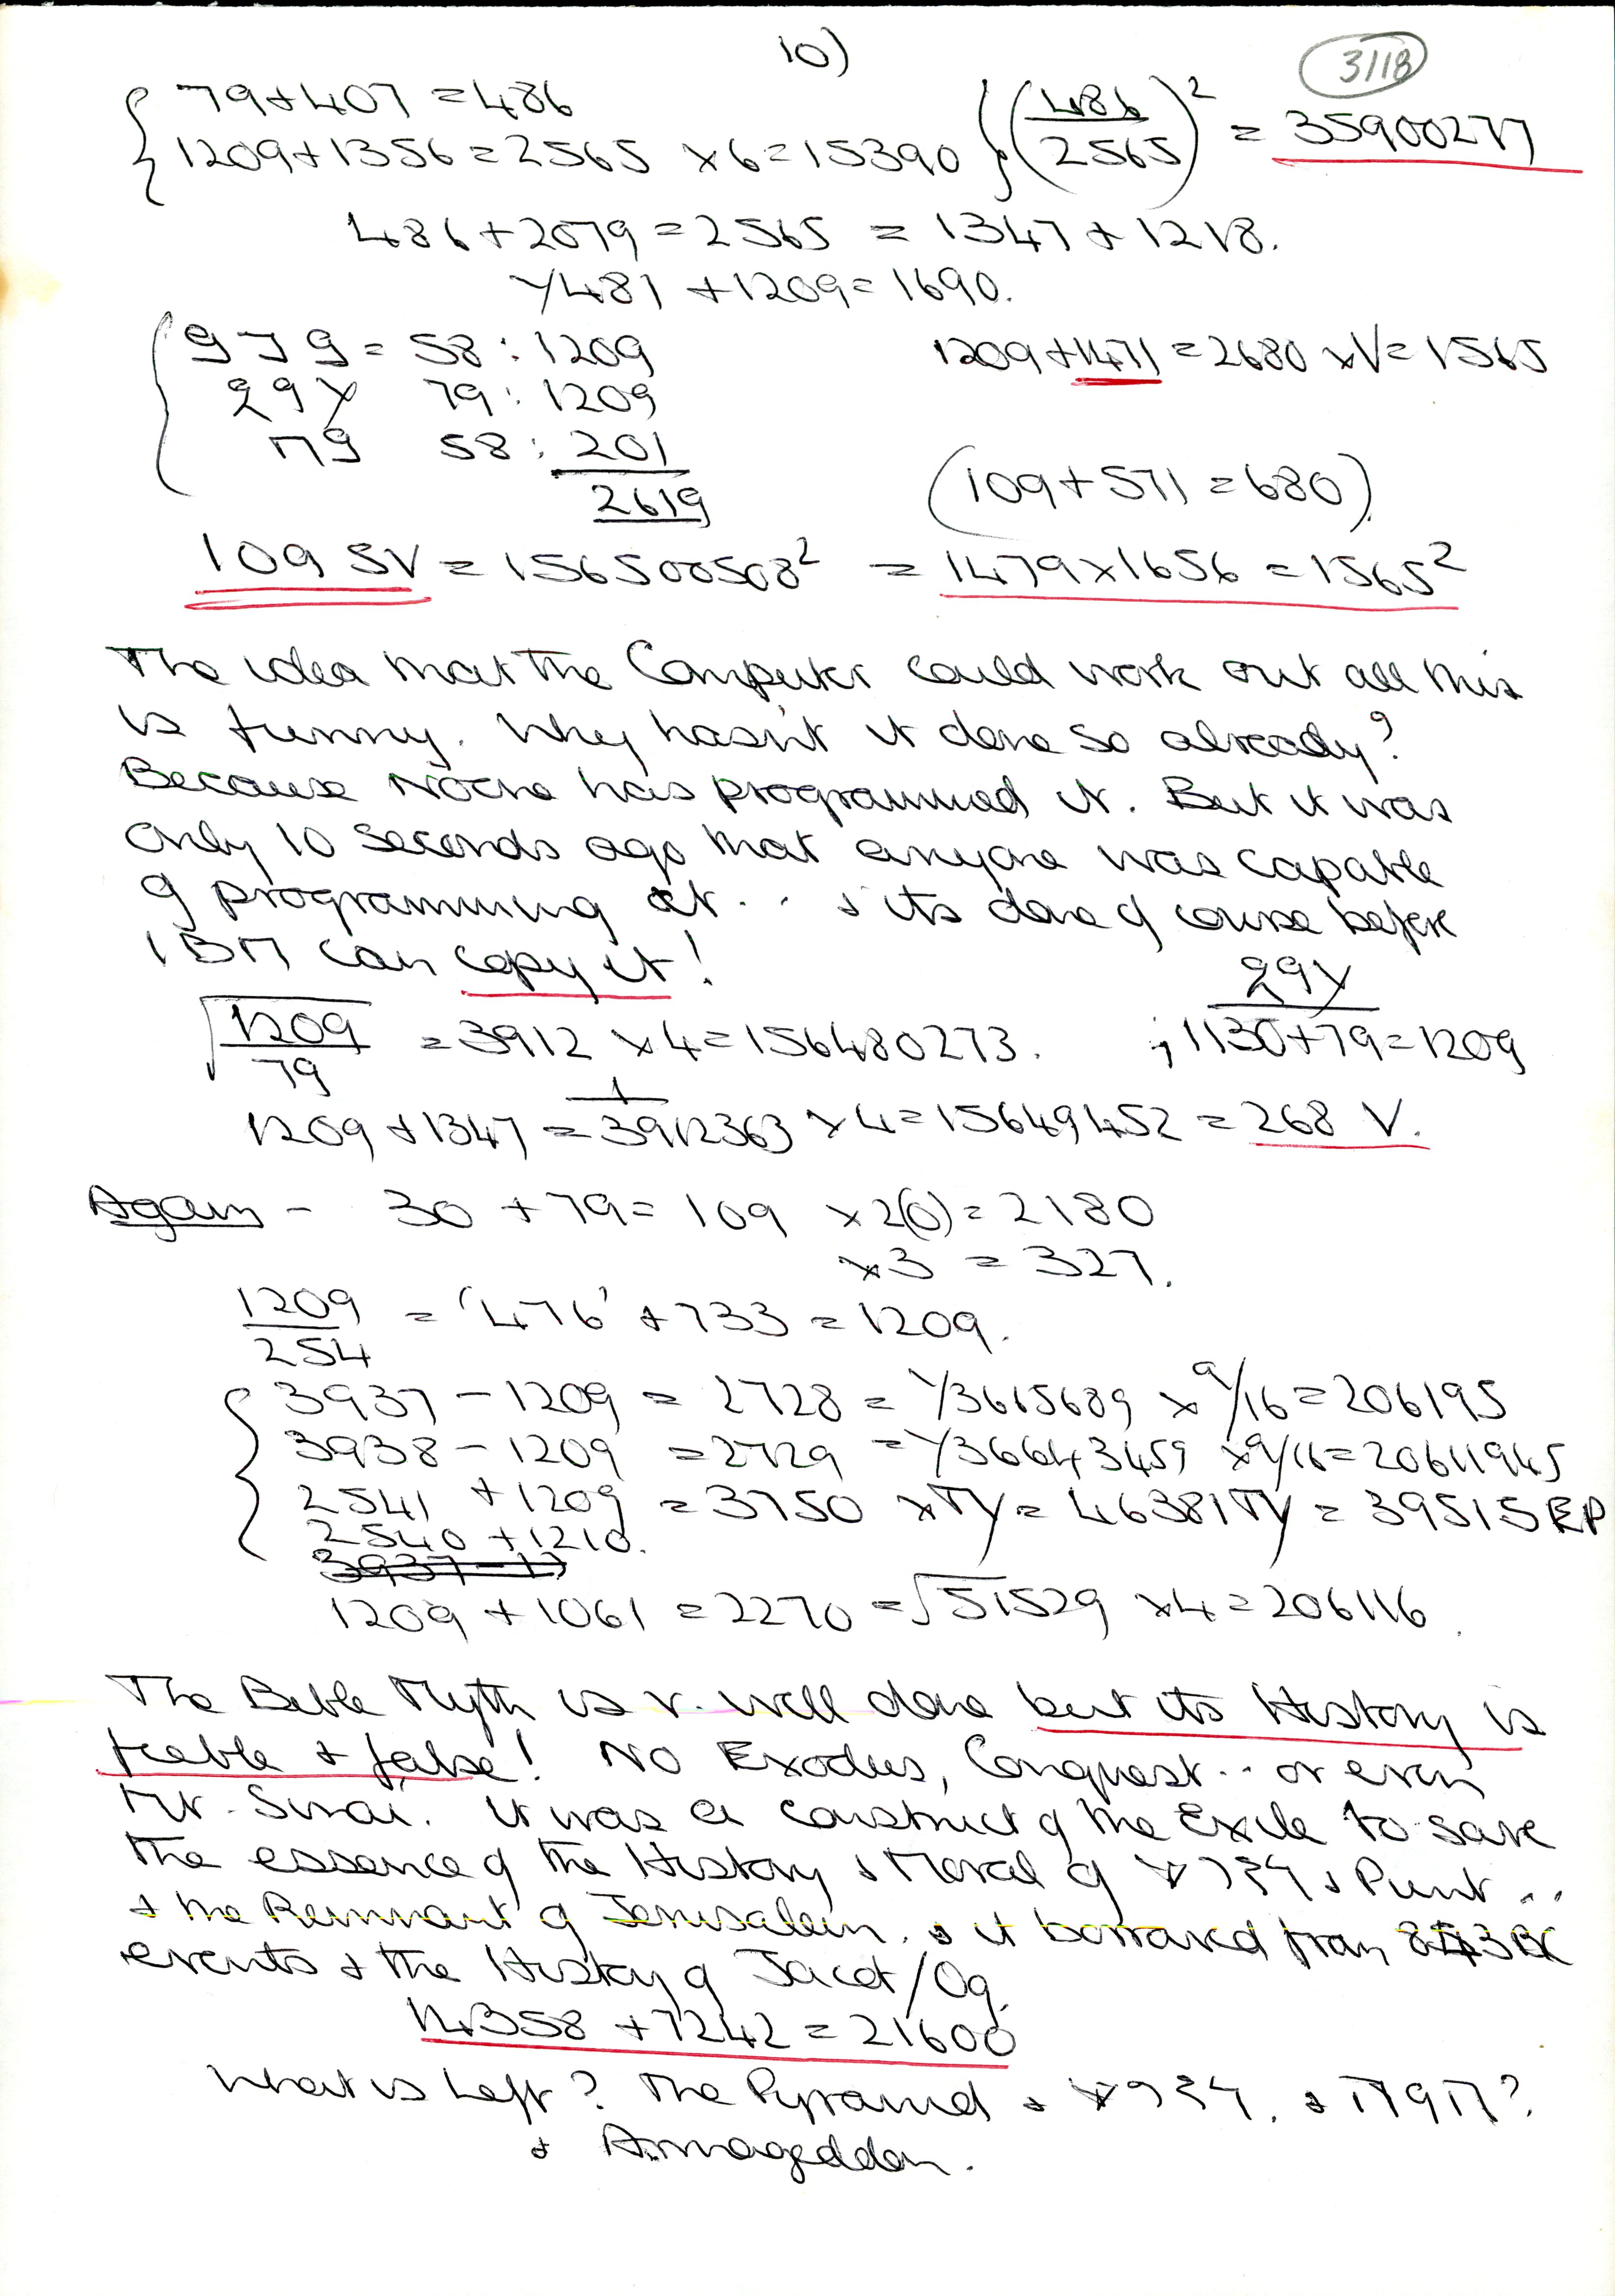 10)
3118
79+407 = 486
(486/2565)² = 35900277
1209+1356 = 2565 × 6 = 15390
486+2079 = 2565 = 1347 + 1218.
1/481 + 1209 = 1690.
= 58 : 1209
1209+1471 = 2680 × V = 1565
79 : 1209
58 : 201
2619
(109+571 = 680)
109 SV = 156500508² = 1479×1656 = 1565²
The idea that the Computer could work out all this
is funny. Why hasn't it done so already?
Because No one has programmed it. But it was
only 10 seconds ago that anyone was capable
of programming it .. & its done of course before
IBM can copy it!
√1209/79 = 3912 × 4 = 156480273.
; 1130+79 = 1209
1209 + 1347 = 1/3912363 × 4 = 15649452 = 268 V.
Again - 30 + 79 = 109 × 2(0) = 2180
×3 = 327.
1209/254 = '476' + 733 = 1209.
3937 - 1209 = 2728 = 1/3665689 × 9/16 = 206195
3938 - 1209 = 2729 = 1/36643459 × 9/16 = 20611945
2541 + 1209 = 3750 = 39515
2540 + 1210.
1209 + 1061 = 2270 = √51529 × 4 = 206116.
The Bible Myth is v. well done but its History is
feeble & false! No Exodus, Conquest .. or even
Mt. Sinai. It was a construct of the Exile to save
the essence of the History & Moral of & Punt ..
& the Remnant of Jerusalem. & it borrowed from
events & the History of Jacob/Og.
14358 + 7242 = 21600
What is Left? The Pyramid &
& Armageddon.